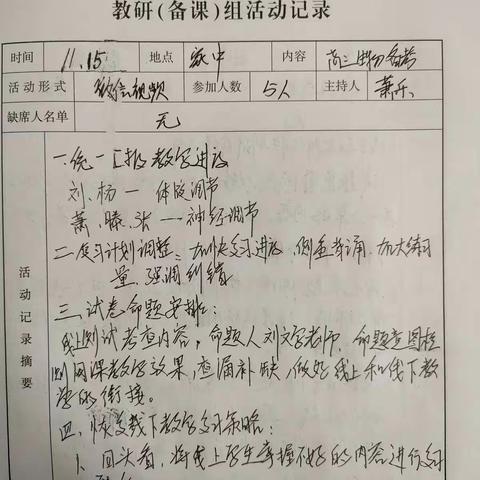 教研(备课)组活动记录
时间 11.15 地点 家中 内容 高三生物备考
活动形式 微信视频 参加人数 5人 主持人 萧乐
缺席人名单 无
活动记录摘要
一、统一汇报教学进度
刘、杨一 体液调节
萧、滕、张 一神经调节
二、复习计划调整:加快复习进度,侧重背诵,加大练习
量,强调纠错
三、试卷命题安排:
线上测试考查内容,命题人刘文字老师,命题意图检
测网课教学效果,查漏补缺,做好线上和线下教
学的衔接。
四、恢复线下教学复习策略:
1、回头看,将线上学生掌握不好的内容进行复习